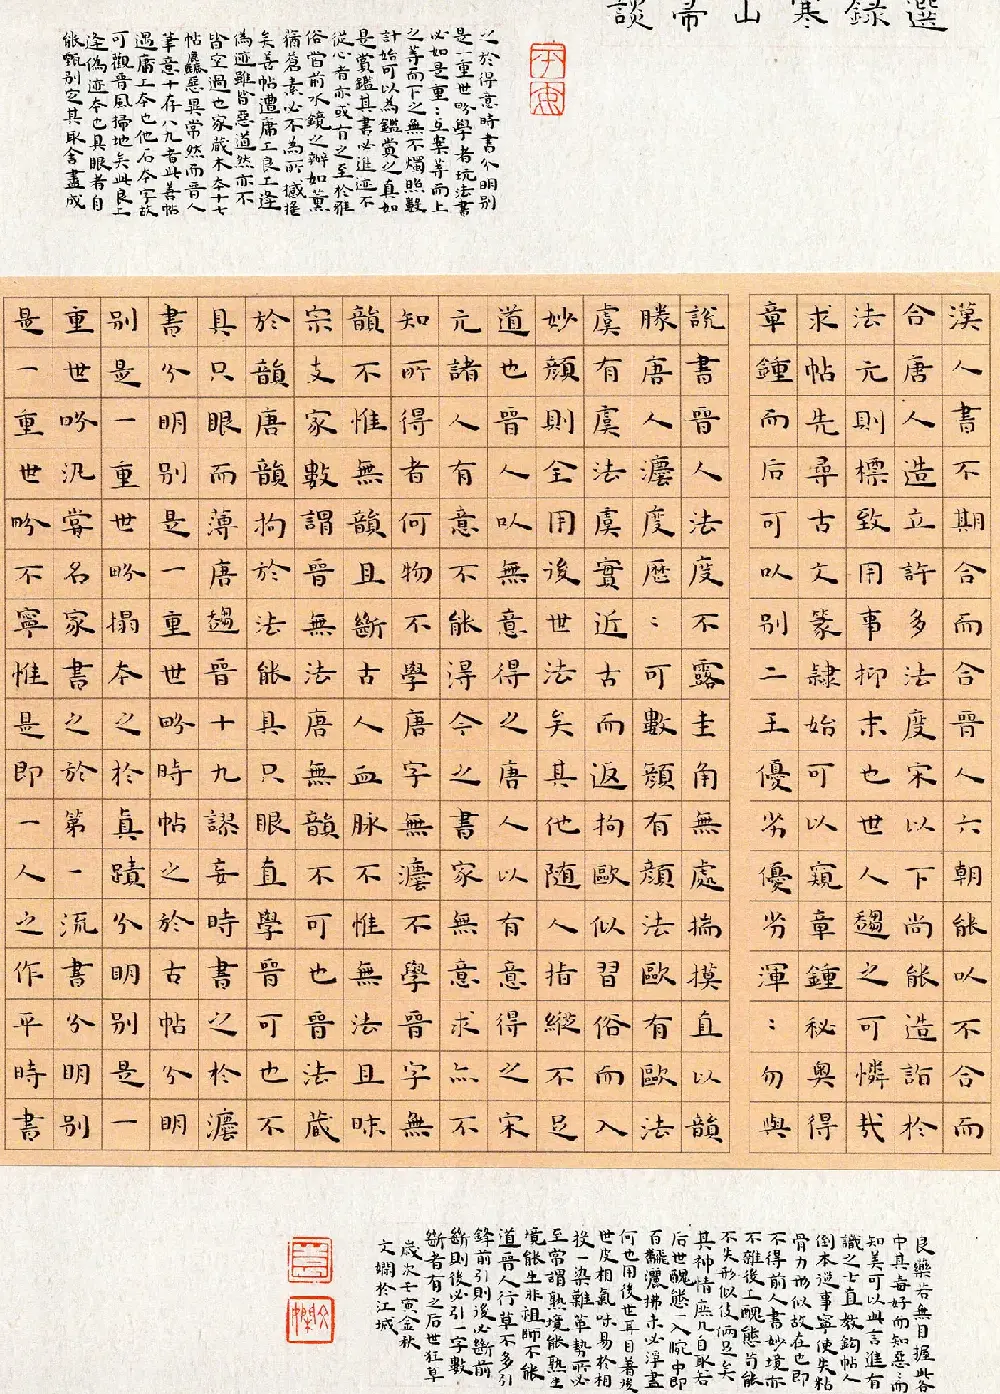 選録寒山帚談
之於得意時書分明別
是一重世畍學者玩法書
必如是重:立案等而上
之等而下之無不燭照數
計始可以為鑑賞之真如
是賞鑑其書必進迹不
從心者亦或有之至於雅
俗當前水鏡之辦如薰
猶蒼素必不為所撼搖
矣善帖遭庸工良工逢
偽迹雖皆惡道然亦不
皆空過也家蔵木本十七
帖麤惡異常然而晉人
筆意十存八九者此善帖
遇庸工本也他石本字故
可觀晉風掃地矣此良工
逢偽迹本也具眼者自
能甄別定其取舍盡成
漢人書不期合而合晉人六朝能以不合而
合唐人造立許多法度宋以下尚能造詣於
法元則標致用事抑末也世人趨之可憐哉
求帖先尋古文篆隸始可以窺章鍾秘奥得
章鍾而后可以別二王優劣優劣渾:勿與
說書晉人法度不露圭角無處揣摸直以韻
勝唐人灋度歷:可數顏有顏法歐有歐法
虞有虞法虞實近古而返拘歐似習俗而入
妙顏則全用後世法矣其他随人指縱不足
道也晉人以無意得之唐人以有意得之宋
元諸人有意不能得今之書家無意求亦不
知所得者何物不學唐字無灋不學晉字無
韻不惟無韻且斷古人血脉不惟無法且昧
宗支家數謂晉無法唐無韻不可也晉法蔵
於韻唐韻拘於法能具只眼直學晉可也不
具只眼而薄唐趨晉十九謬妄時書之於灋
書分明別是一重世畍時帖之於古帖分明
別是一重世畍搨本之於真蹟分明別是一
重世畍汎常名家書之於第一流書分明別
是一重世畍不寧惟是即一人之作平時書
良藥若無目握此各
中其毒好而知惡:而
知美可以與言進有
識之士直教鈎帖人
倒本逆事寧使失粘
骨力形似故在也即
不得前人書妙境亦
不雜後工醜態苟能
不失形似後兩足矣
其神情庶几自取若
后世醜態一入腕中即
百飜灑拂未必淨盡
何也用後世耳目著後
世皮相氣味易於相
投一染難革勢所必
至常謂熟境能熟生
境能生非祖師不能
道晉人行草不多引
鋒前引則後必斷前
斷則後必引一字數
斷者有之后世狂草
歲次壬寅金秋
文嫺於江城